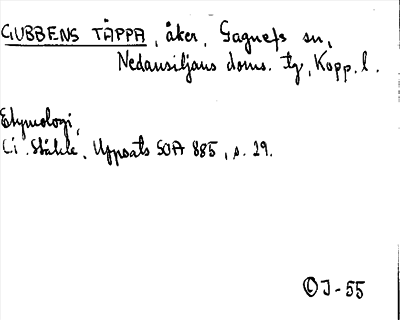 GUBBENS TÄPPA, åker, Gagnefs sn,
Nedansiljans doms. tg, Kopp. l.
Etymologi,
C.I. Ståhle, Uppsats SOA 885, s. 29.
J-55